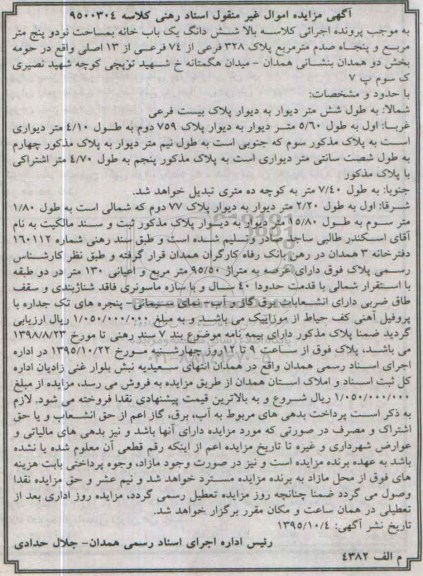 آگهی مزایده اموال غیر منقول اسناد رهنی کلاسه ۹۵۰۰۳۰۴
به موجب پرونده اجرائی کلاسه بالا شش دانگ یک باب خانه بمساحت نودو پنج متر
مربع و پنجاه صدم مترمربع پلاک ۳۲۸ فرعی از ۷۴ فرعی از ۱۳ اصلی واقع در حومه
بخش دو همدان بنشانی همدان - میدان هگمتانه خ شهید توپچی کوچه شهید نصیری
ک سوم پ ۷
با حدود و مشخصات:
شمالا: به طول شش متر دیوار به دیوار پلاک بیست فرعی
غربا: اول به طول ۵/۶۰ متر دیوار به دیوار پلاک ۷۵۹ دوم به طول ۴/۱۰ متر دیواری
است به پلاک مذکور سوم که جنوبی است به طول نیم متر دیوار به پلاک مذکور چهارم
به طول شصت سانتی متر دیواری است به پلاک مذکور پنجم به طول ۴/۷۰ متر اشتراکی
با پلاک مذکور
جنوبا: به طول ۷/۴۰ متر به کوچه ده متری تبدیل خواهد شد.
شرقا: اول به طول ۲/۲۰ متر دیوار به دیوار پلاک ۷۷ دوم که شمالی است به طول ۱/۸۰
متر سوم به طول ۱۵/۸۰ متر دیوار به دیوار پلاک مذکور ثبت و سند مالکیت به نام
آقای اسکندر طالبی ساجد صادر وتسلیم شده است و طبق سند رهنی شماره ۱۶۰۱۱۲
دفترخانه ۳ همدان در رهن بانک رفاه کارگران همدان قرار گرفته و طبق نظر کارشناس
رسمی پلاک فوق دارای عرصه به متراژ ۹۵/۵۰ متر مربع و اعیانی ۱۳۰ متر در دو طبقه
با استقرار شمالی با قدمت حدودا ۴۰ سال و با سازه ماسونری فاقد شناژبندی و سقف
طاق ضربی دارای انشعابات برق گاز و آب- نمای سیمانی- پنجره های تک جداره با
پروفیل آهنی کف حیاط از موزاییک می باشد و به مبلغ ۱/۰۵۰/۰۰۰/۰۰۰ ریال ارزیابی
گردید ضمنا پلاک مذکور دارای بیمه نامه موضوع بند ۷ سند رهنی تا مورخ ۱۳۹۸/۸/۲۳
می باشد، پلاک فوق از ساعت ۹ تا ۱۲روز چهارشنبه مورخ ۱۳۹۵/۱۰/۲۲ در اداره
اجرای اسناد رسمی همدان واقع در همدان انتهای سعیدیه نبش بلوار غنی زادیان اداره
کل ثبت اسناد و املاک استان همدان از طریق مزایده به فروش می رسد، مزایده از مبلغ
۱/۰۵۰/۰۰۰/۰۰۰ ریال شروع و به بالاترین قیمت پیشنهادی نقدا فروخته می شود. لازم
به ذکر است پرداخت بدهی های مربوط به آب، برق، گاز اعم از حق انشعاب و یا حق
اشتراک و مصرف در صورتی که مورد مزایده دارای آنها باشد و نیز بدهی های مالیاتی و
عوارض شهرداری و غیره تا تاریخ مزایده اعم از اینکه رقم قطعی آن معلوم شده یا نشده
باشد به عهده برنده مزایده است و نیز در صورت وجود مازاد، وجوه پرداختی بابت هزینه
های فوق از محل مازاد به برنده مزایده مسترد خواهد شد و نیم عشر و حق مزایده نقدا
وصول می گردد ضمنا چنانچه روز مزایده تعطیل رسمی گردد، مزایده روز اداری بعد از
تعطیلی در همان ساعت و مکان مقرر برگزار خواهد شد.
تاریخ نشر آگهی: ۱۳۹۵/۱۰/۴
رئیس اداره اجرای اسناد رسمی همدان- جلال حدادی
م الف ۴۳۸۲